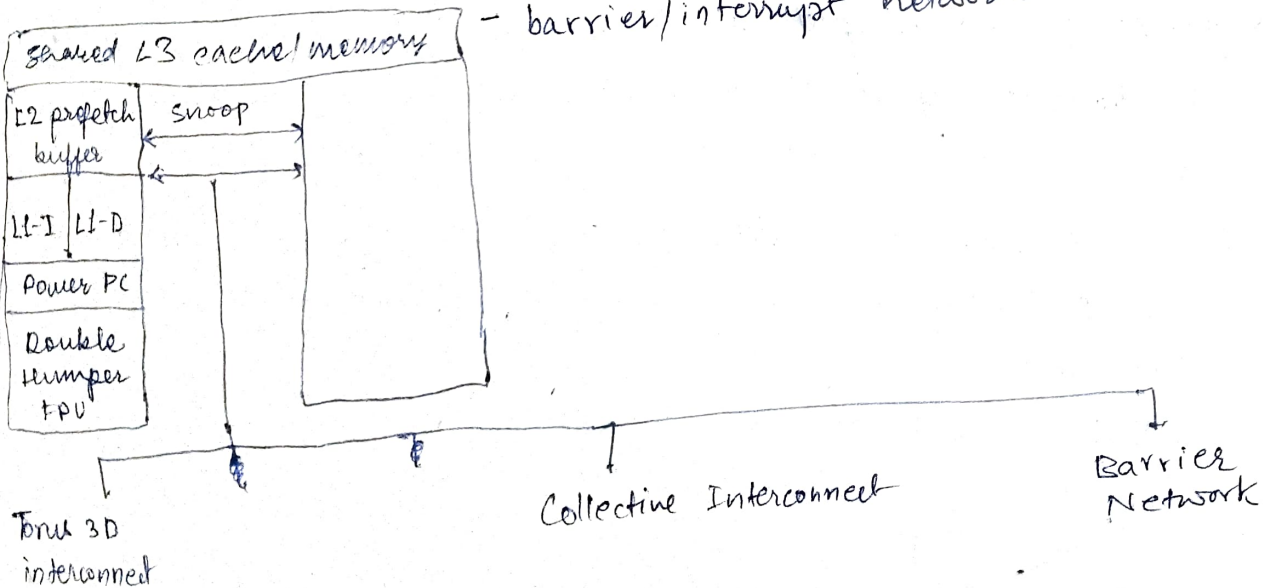 - barrier/interrupt
shared L3 cache/memory
L2 prefetch
buffer
snoop
L1-I L1-D
Power PC
Double
Hummer
FPU
Torus 3D
interconnect
Collective Interconnect
Barrier
Network